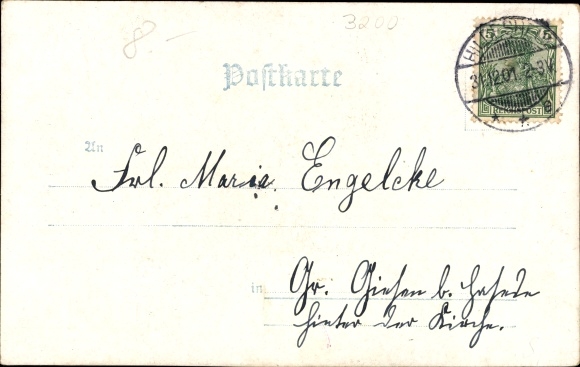 8.-
3200
Postkarte
31.12.01. 2-3N.
REICHSPOST
An
Frl. Marie Engelcke
in Gr. Giesen b. Hasede
hinter der Kirche.